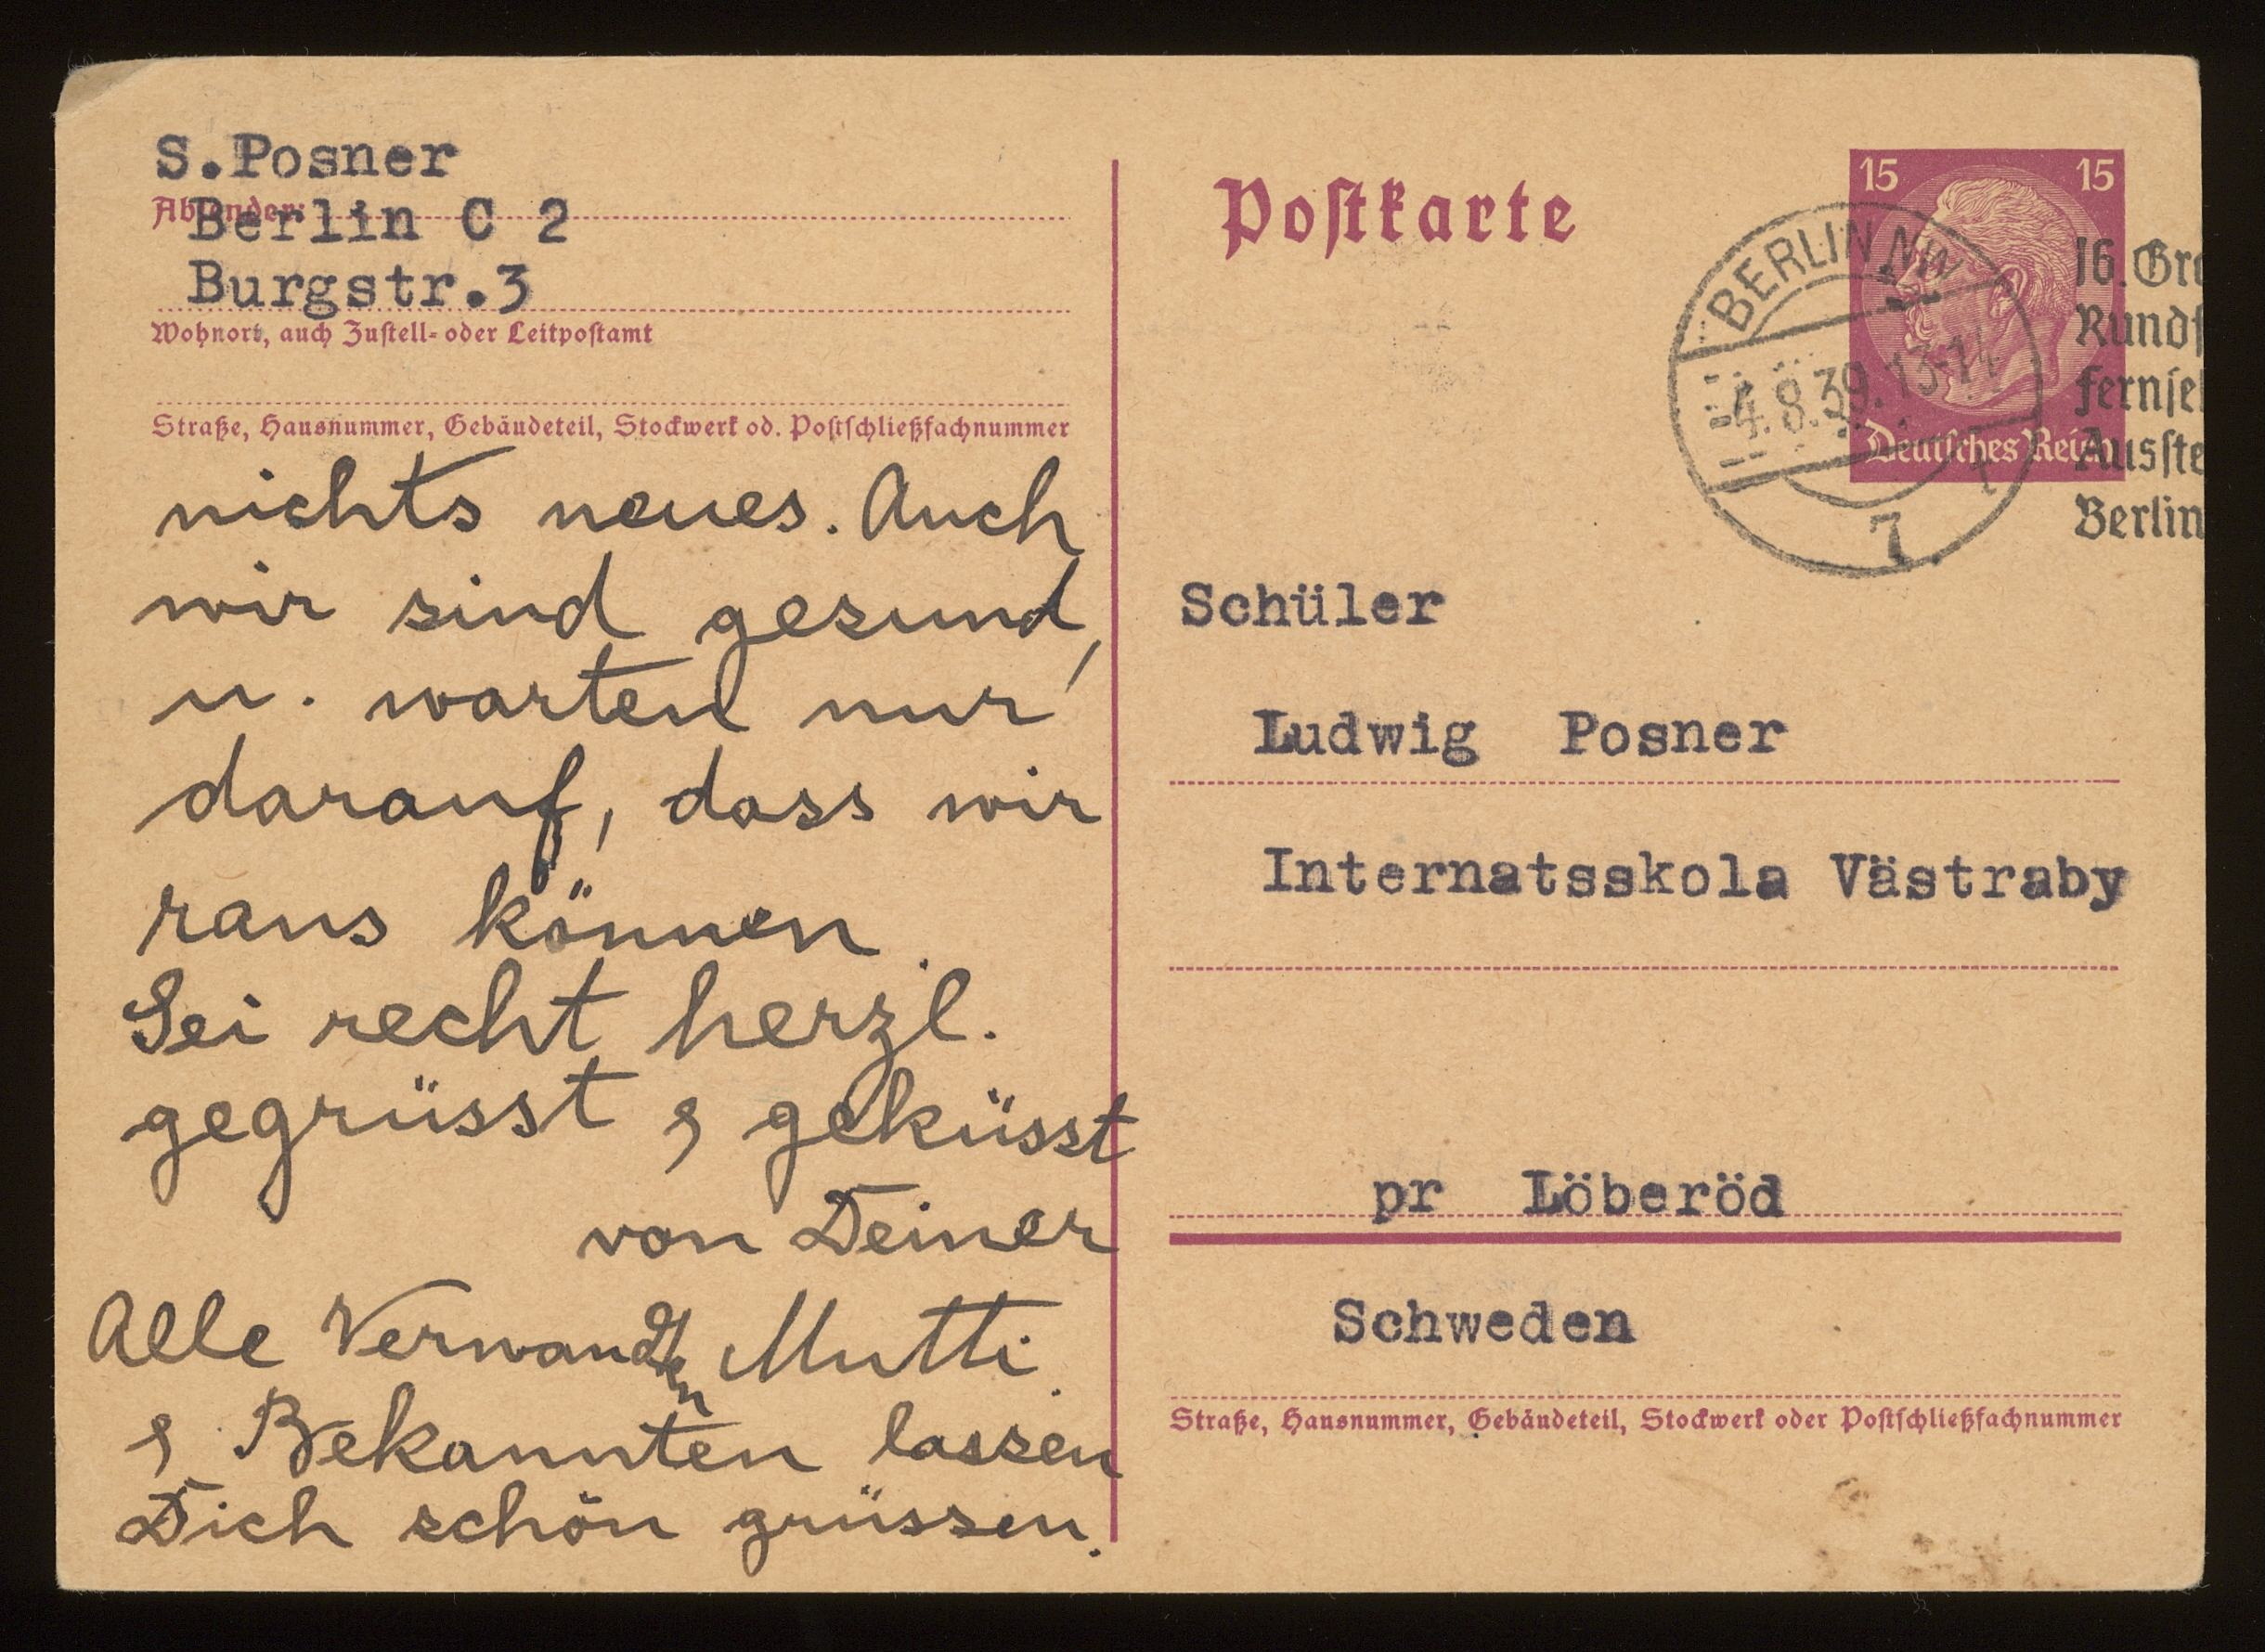 S.Posner
Absender:
Berlin C 2
Burgstr.3
Wohnort, auch Zustell- oder Leitpostamt
Straße, Hausnummer, Gebäudeteil, Stockwerk od. Postschließfachnummer
nichts neues. Auch
wir sind gesund,
u. warten nur
darauf, dass wir
raus können.
Sei recht herzl.
gegrüsst & geküsst
von Deiner
Mutti.
Alle Verwandten
& Bekannten lassen
Dich schön grüssen.
Postkarte
15 15
Deutsches Reich
BERLIN NW
-4.8.39.13-14
7
16. Gro
Rundf
Fernseh
Ausste
Berlin
Schüler
Ludwig Posner
Internatsskola Västraby
pr Löberöd
Schweden
Straße, Hausnummer, Gebäudeteil, Stockwerk oder Postschließfachnummer